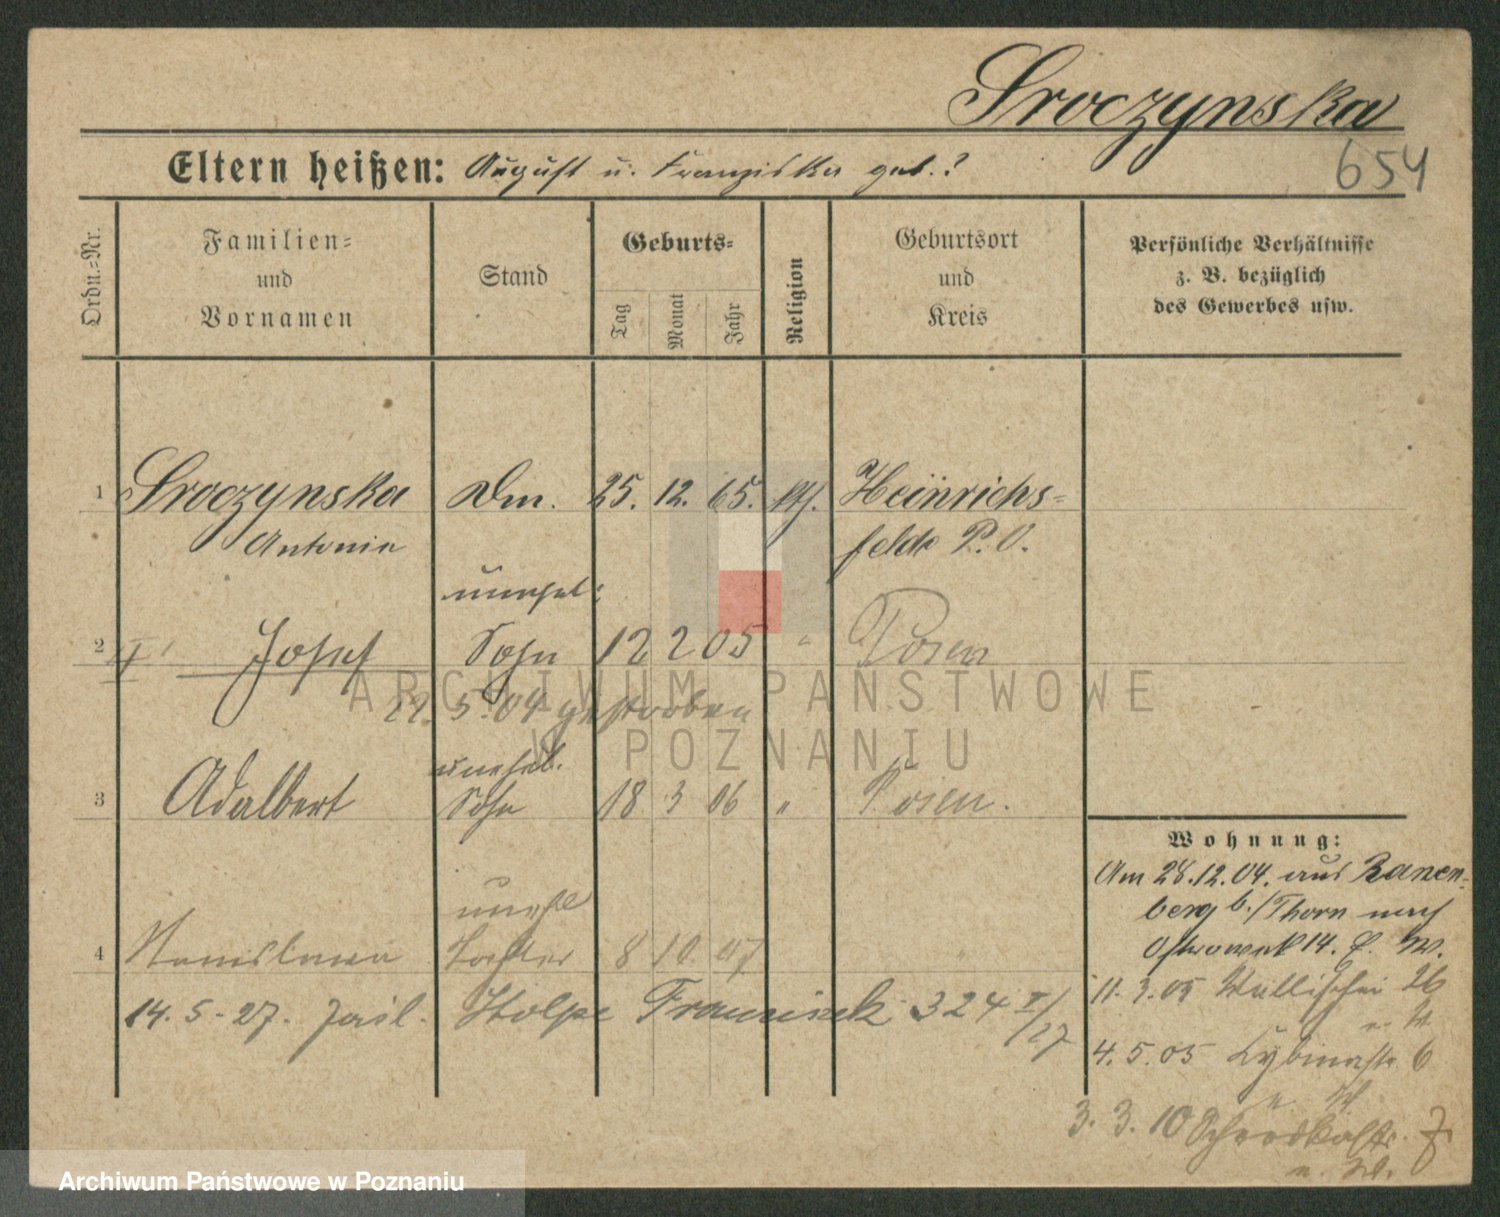 Sroczynska
654
Eltern heißen: August u. Franziska geb.?
Ordn.-Nr.
Familien-
und
Vornamen
Stand
Geburts-
Tag
Monat
Jahr
Religion
Geburtsort
und
Kreis
Persönliche Verhältnisse
z. B. bezüglich
des Gewerbes usw.
1 Sroczynska Dm. 25. 12. 65. kth. Heinrichs-
Antonie felde P. O.
unehel:
2 Josef Sohn 12 2 05 " Posen
22. 5. 04 gestorben
unehel.
3 Adalbert Sohn 18 3 06 " Posen.
unehl
4 Stanislawa Tochter 8 10 07
14. 5. 27. Stolpe Franciszek 324
Wohnung:
Am 28.12.04. aus
berg b./Thorn nach
Ostrowek 14.
11. 3. 05 Wallischei 26
4. 5. 05 Cybinastr 6
3. 3. 10 Schrodkastr. 7
ARCHIWUM PAŃSTWOWE
W POZNANIU
Archiwum Państwowe w Poznaniu